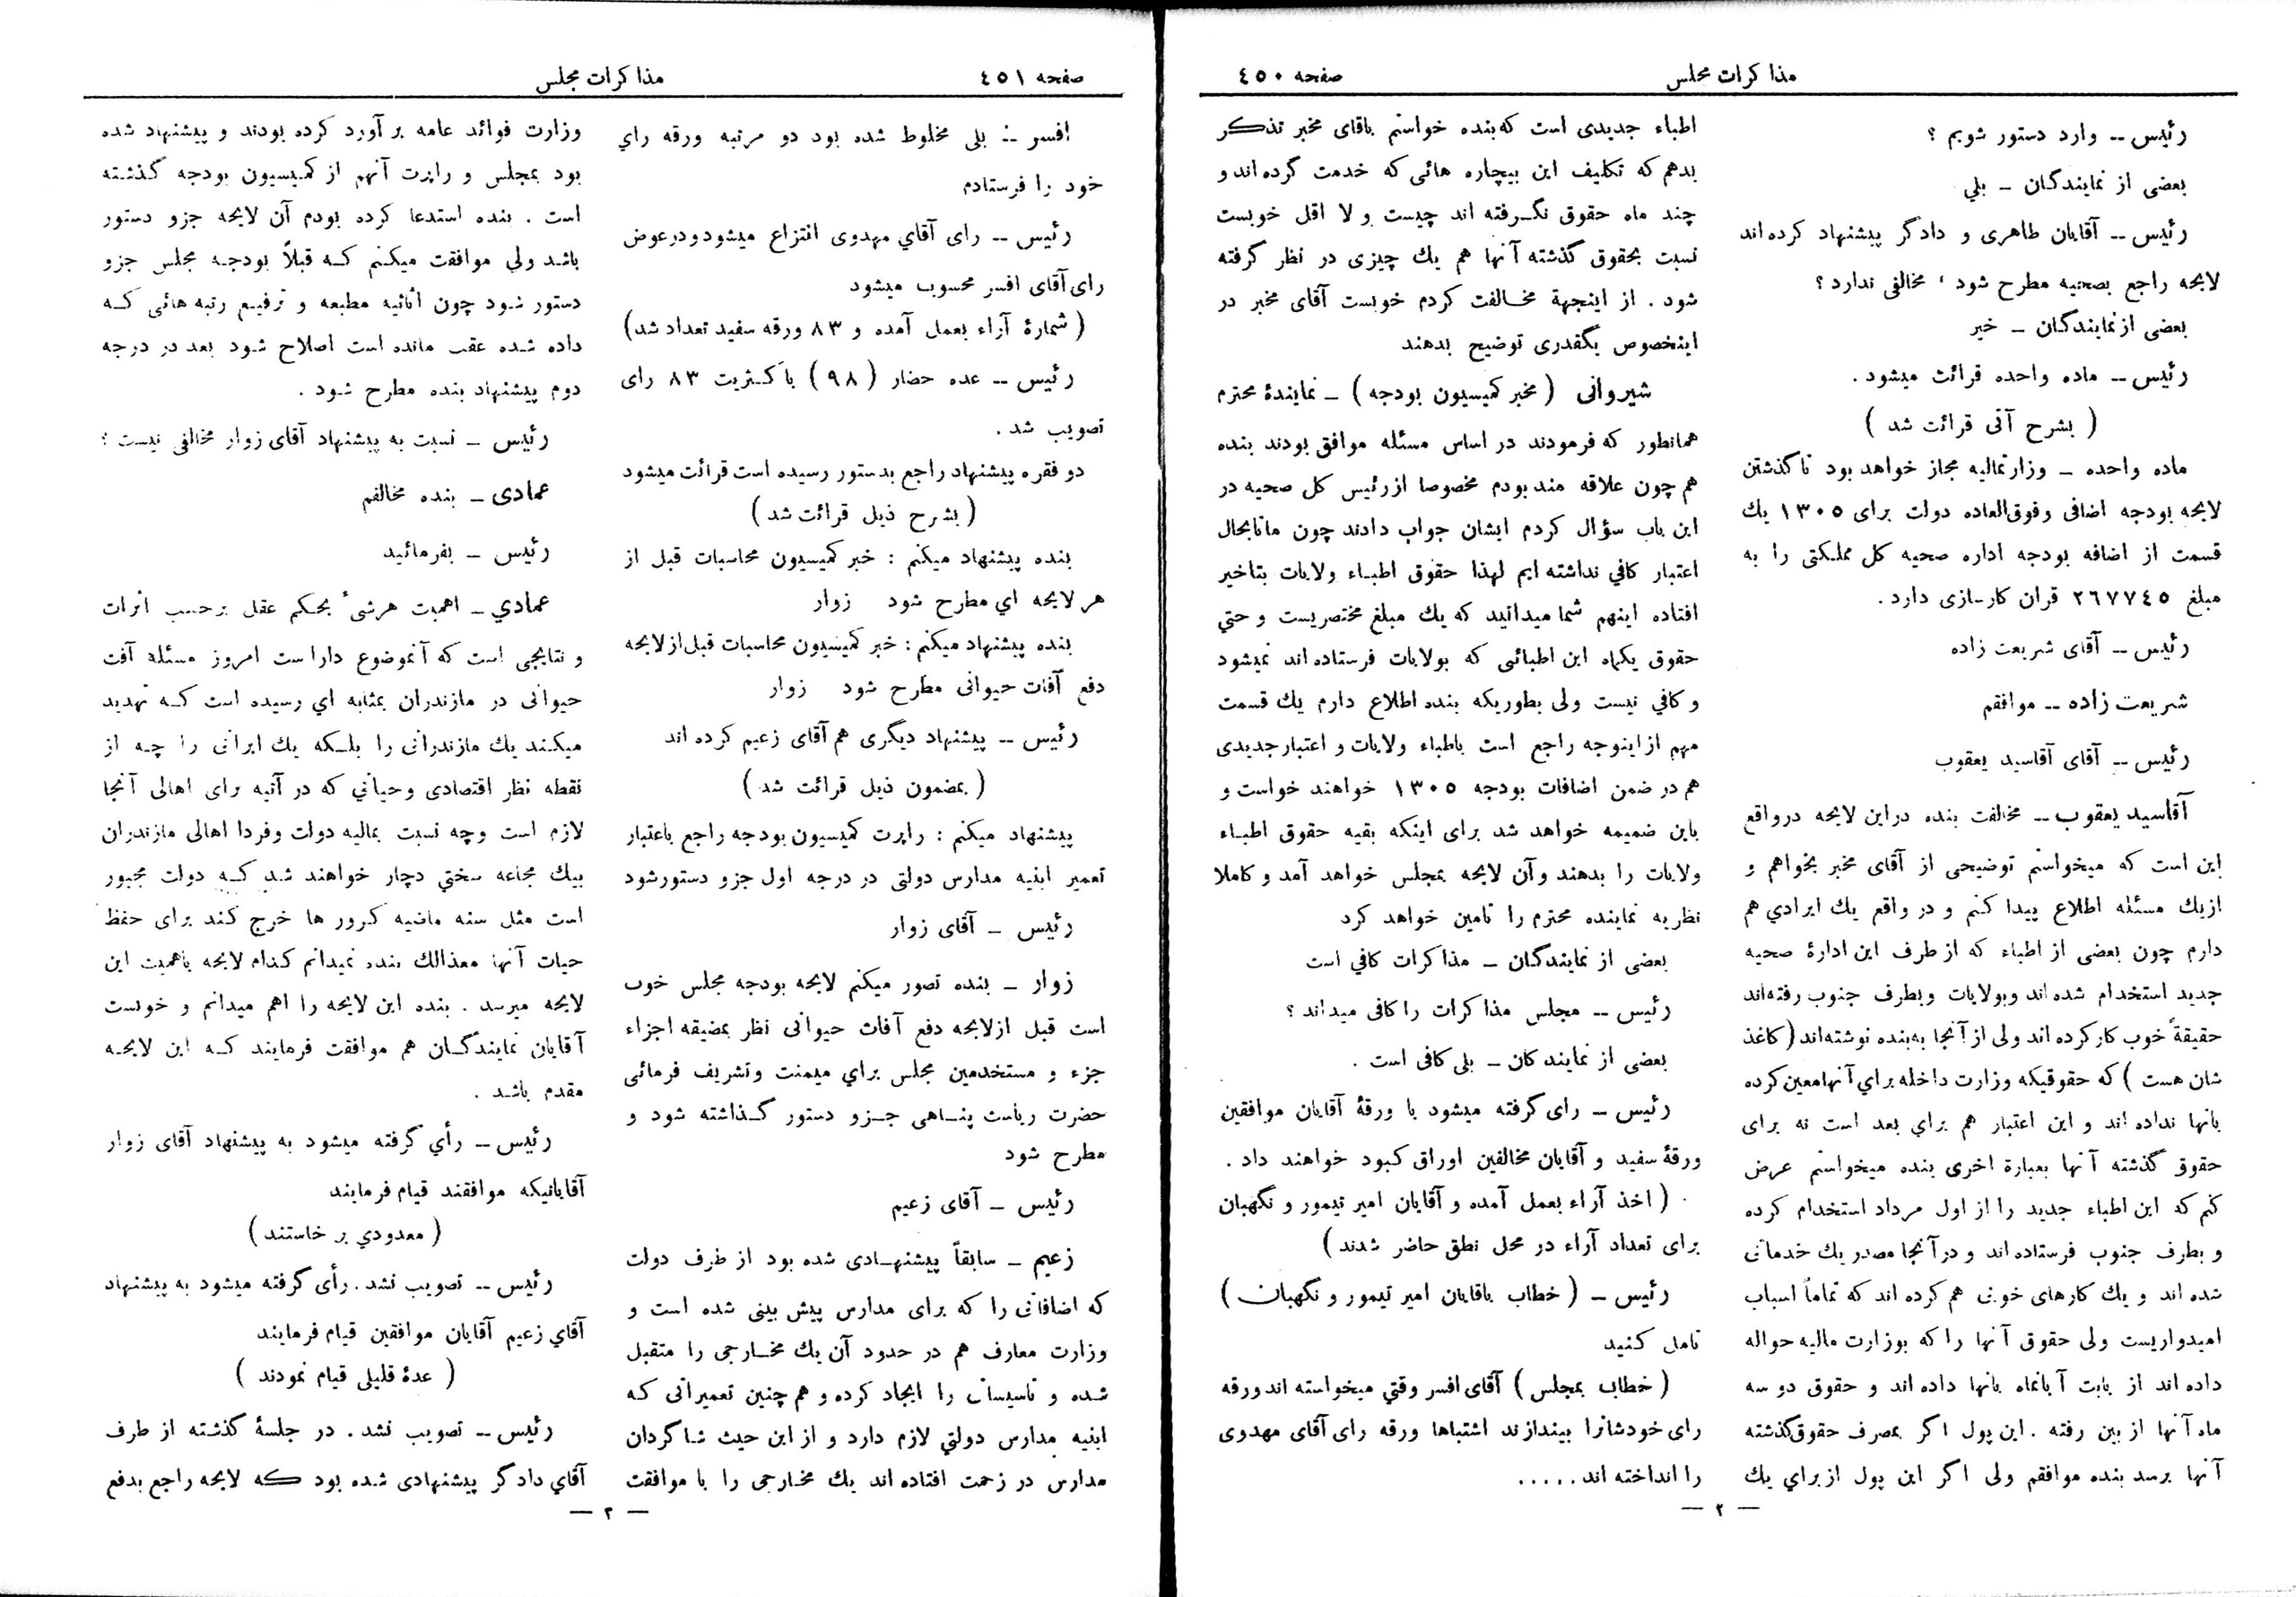 مذاکرات مجلس
صفحه ٤٥٠
رئیس -- وارد دستور شویم ؟
بعضی از نمایندگان - بلی
رئیس -- آقایان طاهری و دادگر پیشنهاد کرده اند
لایحه راجع بصحیه مطرح شود ، مخالفی ندارد ؟
بعضی از نمایندگان - خیر
رئیس -- ماده واحده قرائت میشود .
( بشرح آتی قرائت شد )
ماده واحده - وزارتمالیه مجاز خواهد بود تا گذشتن
لایحه بودجه اضافی وفوق‌العاده دولت برای ۱۳۰۵ یك
قسمت از اضافه بودجه اداره صحیه کل مملکتی را به
مبلغ ٢٦٧٧٤٥ قران کارسازی دارد .
رئیس -- آقای شریعت زاده
شریعت زاده -- موافقم
رئیس -- آقای آقاسید یعقوب
آقاسید یعقوب -- مخالفت بنده دراین لایحه درواقع
این است که میخواستم توضیحی از آقای مخبر بخواهم و
ازیك مسئله اطلاع پیدا کنم و در واقع یك ایرادي هم
دارم چون بعضی از اطباء که از طرف این ادارۀ صحیه
جدید استخدام شده اند وبولایات وبطرف جنوب رفته‌اند
حقیقةً خوب کار کرده اند ولی از آنجا به‌بنده نوشته‌اند (کاغذ
شان هست ) که حقوقیکه وزارت داخله براي آنهامعین کرده
بآنها نداده اند و این اعتبار هم براي بعد است نه برای
حقوق گذشته آنها بعبارة اخری بنده میخواستم عرض
کنم که این اطباء جدید را از اول مرداد استخدام کرده
و بطرف جنوب فرستاده اند و درآنجا مصدر یك خدماتی
شده اند و یك کارهای خوبی هم کرده اند که تماماً اسباب
امیدواریست ولی حقوق آنها را که بوزارت مالیه حواله
داده اند از بابت آبانماه بآنها داده اند و حقوق دو سه
ماه آنها از بین رفته . این پول اگر بمصرف حقوق گذشته
آنها برسد بنده موافقم ولی اگر این پول از براي یك
اطباء جدیدی است که بنده خواستم باقای مخبر تذکر
بدهم که تکلیف این بیچاره هائی که خدمت گرده اند و
چند ماه حقوق نگرفته اند چیست و لا اقل خوبست
نسبت بحقوق گذشته آنها هم یك چیزی در نظر گرفته
شود . از اینجهة مخالفت کردم خوبست آقای مخبر در
اینخصوص یگقدری توضیح بدهند
شیروانی ( مخبر کمیسیون بودجه ) - نمایندۀ محترم
همانطور که فرمودند در اساس مسئله موافق بودند بنده
هم چون علاقه مند بودم مخصوصا از رئیس کل صحیه در
این باب سؤال کردم ایشان جواب دادند چون ماتابحال
اعتبار کافي نداشته ایم لهذا حقوق اطباء ولایات بتاخیر
افتاده اینهم شما میدانید که یك مبلغ مختصریست و حتي
حقوق یکماه این اطبائی که بولایات فرستاده اند نمیشود
و کافي نیست ولی بطوریکه بنده اطلاع دارم یك قسمت
مهم از اینوجه راجع است باطباء ولایات و اعتبار جدیدی
هم در ضمن اضافات بودجه ۱۳۰۵ خواهند خواست و
باین ضمیمه خواهد شد برای اینکه بقیه حقوق اطباء
ولایات را بدهند وآن لایحه بمجلس خواهد آمد و کاملا
نظریه نماینده محترم را تامین خواهد کرد
بعضی از نمایندگان - مذاکرات کافي است
رئیس -- مجلس مذاکرات را کافی میداند ؟
بعضی از نمایندکان - بلی کافی است .
رئیس - رای گرفته میشود با ورقۀ آقایان موافقین
ورقۀ سفید و آقایان مخالفین اوراق کبود خواهند داد .
( اخذ آراء بعمل آمده و آقایان امیر تیمور و نگهبان
برای تعداد آراء در محل نطق حاضر شدند )
رئیس - ( خطاب باقایان امیر تیمور و نگهبان )
تامل کنید
( خطاب بمجلس ) آقای افسر وقتي میخواسته اند ورقه
رای خودشانرا بیندازند اشتباها ورقه رای آقای مهدوی
را انداخته اند .....
— ۲ —
صفحه ٤٥١
مذاکرات مجلس
افسر -: بلی مخلوط شده بود دو مرتبه ورقه راي
خود را فرستادم
رئیس -- رای آقاي مهدوی انتزاع میشود و درعوض
رای آقای افسر محسوب میشود
( شمارۀ آراء بعمل آمده و ۸۳ ورقه سفید تعداد شد )
رئیس -- عده حضار ( ۹۸ ) باکثریت ۸۳ رای
تصویب شد .
دو فقره پیشنهاد راجع بدستور رسیده است قرائت میشود
( بشرح ذیل قرائت شد )
بنده پیشنهاد میکنم : خبر کمیسیون محاسبات قبل از
هر لایحه اي مطرح شود زوار
بنده پیشنهاد میکنم : خبر کمیسیون محاسبات قبل از لایحه
دفع آفات حیوانی مطرح شود زوار
رئیس -- پیشنهاد دیگری هم آقای زعیم کرده اند
( بمضمون ذیل قرائت شد )
پیشنهاد میکنم : راپرت کمیسیون بودجه راجع باعتبار
تعمیر ابنیه مدارس دولتی در درجه اول جزو دستور شود
رئیس - آقای زوار
زوار - بنده تصور میکنم لایحه بودجه مجلس خوب
است قبل از لایحه دفع آفات حیوانی نظر بمضیقه اجزاء
جزء و مستخدمین مجلس براي میمنت وتشریف فرمائی
حضرت ریاست پناهی جزو دستور گذاشته شود و
مطرح شود
رئیس - آقای زعیم
زعیم - سابقاً پیشنهادی شده بود از طرف دولت
که اضافاتی را که برای مدارس پیش بینی شده است و
وزارت معارف هم در حدود آن یك مخارجی را متقبل
شده و تاسیسات را ایجاد کرده و هم چنین تعمیراتی که
ابنیه مدارس دولتي لازم دارد و از این حیث شاگردان
مدارس در زحمت افتاده اند یك مخارجی را با موافقت
وزارت فوائد عامه بر آورد کرده بودند و پیشنهاد شده
بود بمجلس و راپرت آنهم از کمیسیون بودجه گذشته
است . بنده استدعا کرده بودم آن لایحه جزو دستور
باشد ولي موافقت میکنم که قبلاً بودجه مجلس جزو
دستور شود چون اثاثیه مطبعه و ترفیع رتبه هائی که
داده شده عقب مانده است اصلاح شود بعد در درجه
دوم پیشنهاد بنده مطرح شود .
رئیس - نسبت به پیشنهاد آقای زوار مخالفی نیست ؟
عمادی - بنده مخالفم
رئیس - بفرمائید
عمادي - اهمیت هرشیء بحکم عقل برحسب اثرات
و نتایجی است که آنموضوع داراست امروز مسئله آفت
حیوانی در مازندران بمثابه اي رسیده است که تهدید
میکند یك مازندرانی را بلکه یك ایرانی را چه از
نقطه نظر اقتصادی وحیاتي که در آتیه برای اهالی آنجا
لازم است وچه نسبت بمالیه دولت وفردا اهالی مازندران
بیك مجاعه سختي دچار خواهند شد که دولت مجبور
است مثل سنه ماضیه کرور ها خرج کند برای حفظ
حیات آنها معذالك بنده نمیدانم کدام لایحه باهمیت این
لایحه میرسد . بنده این لایحه را اهم میدانم و خوبست
آقایان نمایندگان هم موافقت فرمایند که این لایحه
مقدم باشد .
رئیس -- رأي گرفته میشود به پیشنهاد آقای زوار
آقایانیکه موافقند قیام فرمایند
( معدودي بر خاستند )
رئیس -- تصویب نشد . رأی گرفته میشود به پیشنهاد
آقاي زعیم آقایان موافقین قیام فرمایند
( عدۀ قلیلی قیام نمودند )
رئیس -- تصویب نشد . در جلسۀ گذشته از طرف
آقاي دادگر پیشنهادی شده بود که لایحه راجع بدفع
— ۲ —